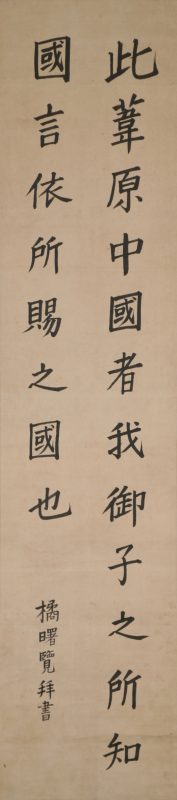 此葦原中國者我御子之所知
國言依所賜之國也
橘曙覽拜書